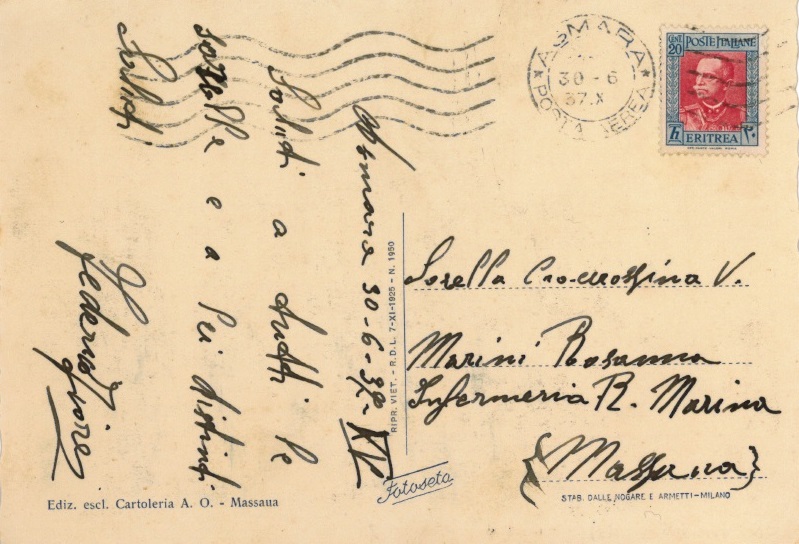 ASMARA
30-6
37.X
POSTA AEREA
CENT. 20 POSTE ITALIANE
ERITREA
Asmara 30-6-37-XV
Saluti a tutti le
sorelle e a Lei distinti
Saluti
Federico
RIPR. VIET. - R.D.L. 7-XI-1925 - N. 1950
Sorella Crocerossina V.
Marini Rosanna
Infermeria R. Marina
{Massaua}
Fotoseta
Ediz. escl. Cartoleria A. O. - Massaua
STAB. DALLE NOGARE E ARMETTI - MILANO